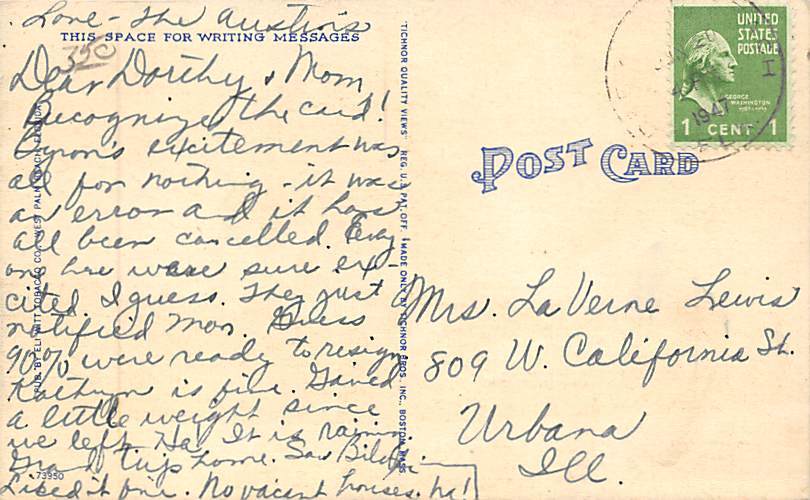 Love - The Austins
THIS SPACE FOR WRITING MESSAGES
35¢
Dear Dorthy & Mom
Recognize the card!
Byron's excitement was
all for nothing - it was
an error and it has
all been cancelled. Every
one here were sure ex-
cited I guess. They just
notified Mon. Guess
90% were ready to resign
Kathryn is fine. Gained
a little weight since
we left. Ha! It is raining
Grand trip home. Saw Biloxi
Liked it fine. No vacant houses. ha!
73950
PUB. BY ELI WITT TOBACCO CO., WEST PALM BEACH, FLORIDA
"TICHNOR QUALITY VIEWS" REG. U.S. PAT. OFF. MADE ONLY BY TICHNOR BROS., INC., BOSTON, MASS.
POST CARD
UNITED
STATES
POSTAGE
GEORGE
WASHINGTON
1 CENT 1
1947
Mrs. LaVerne Lewis
809 W. California St.
Urbana
Ill.